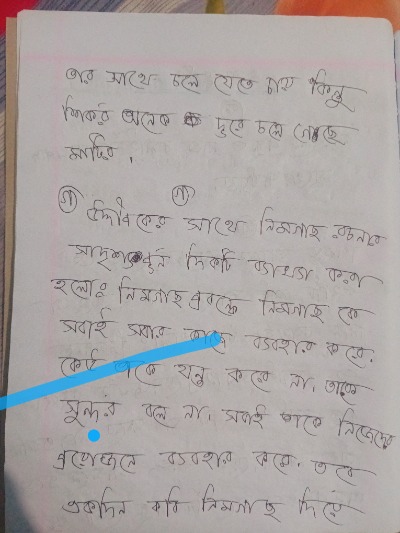 তার সাথে চলে যেতে চায় কিন্তু
শিকর অনেক দূরে চলে গেছে
মাটির।
গ) গ)
উদ্দীপকের সাথে নিমগাছ রচনার
সাদৃশ্যপূর্ন দিকটি ব্যাখ্যা করা
হলোঃ নিমগাছ প্রবন্ধে নিমগাছ কে
সবাই সবার কাজে ব্যবহার করে।
কেউ তাকে যত্ন করে না, তাকে
সুন্দর বলে না। সবাই তাকে নিজেদের
প্রয়োজনে ব্যবহার করে। তবে
একদিন কবি নিমগাছ দিয়ে